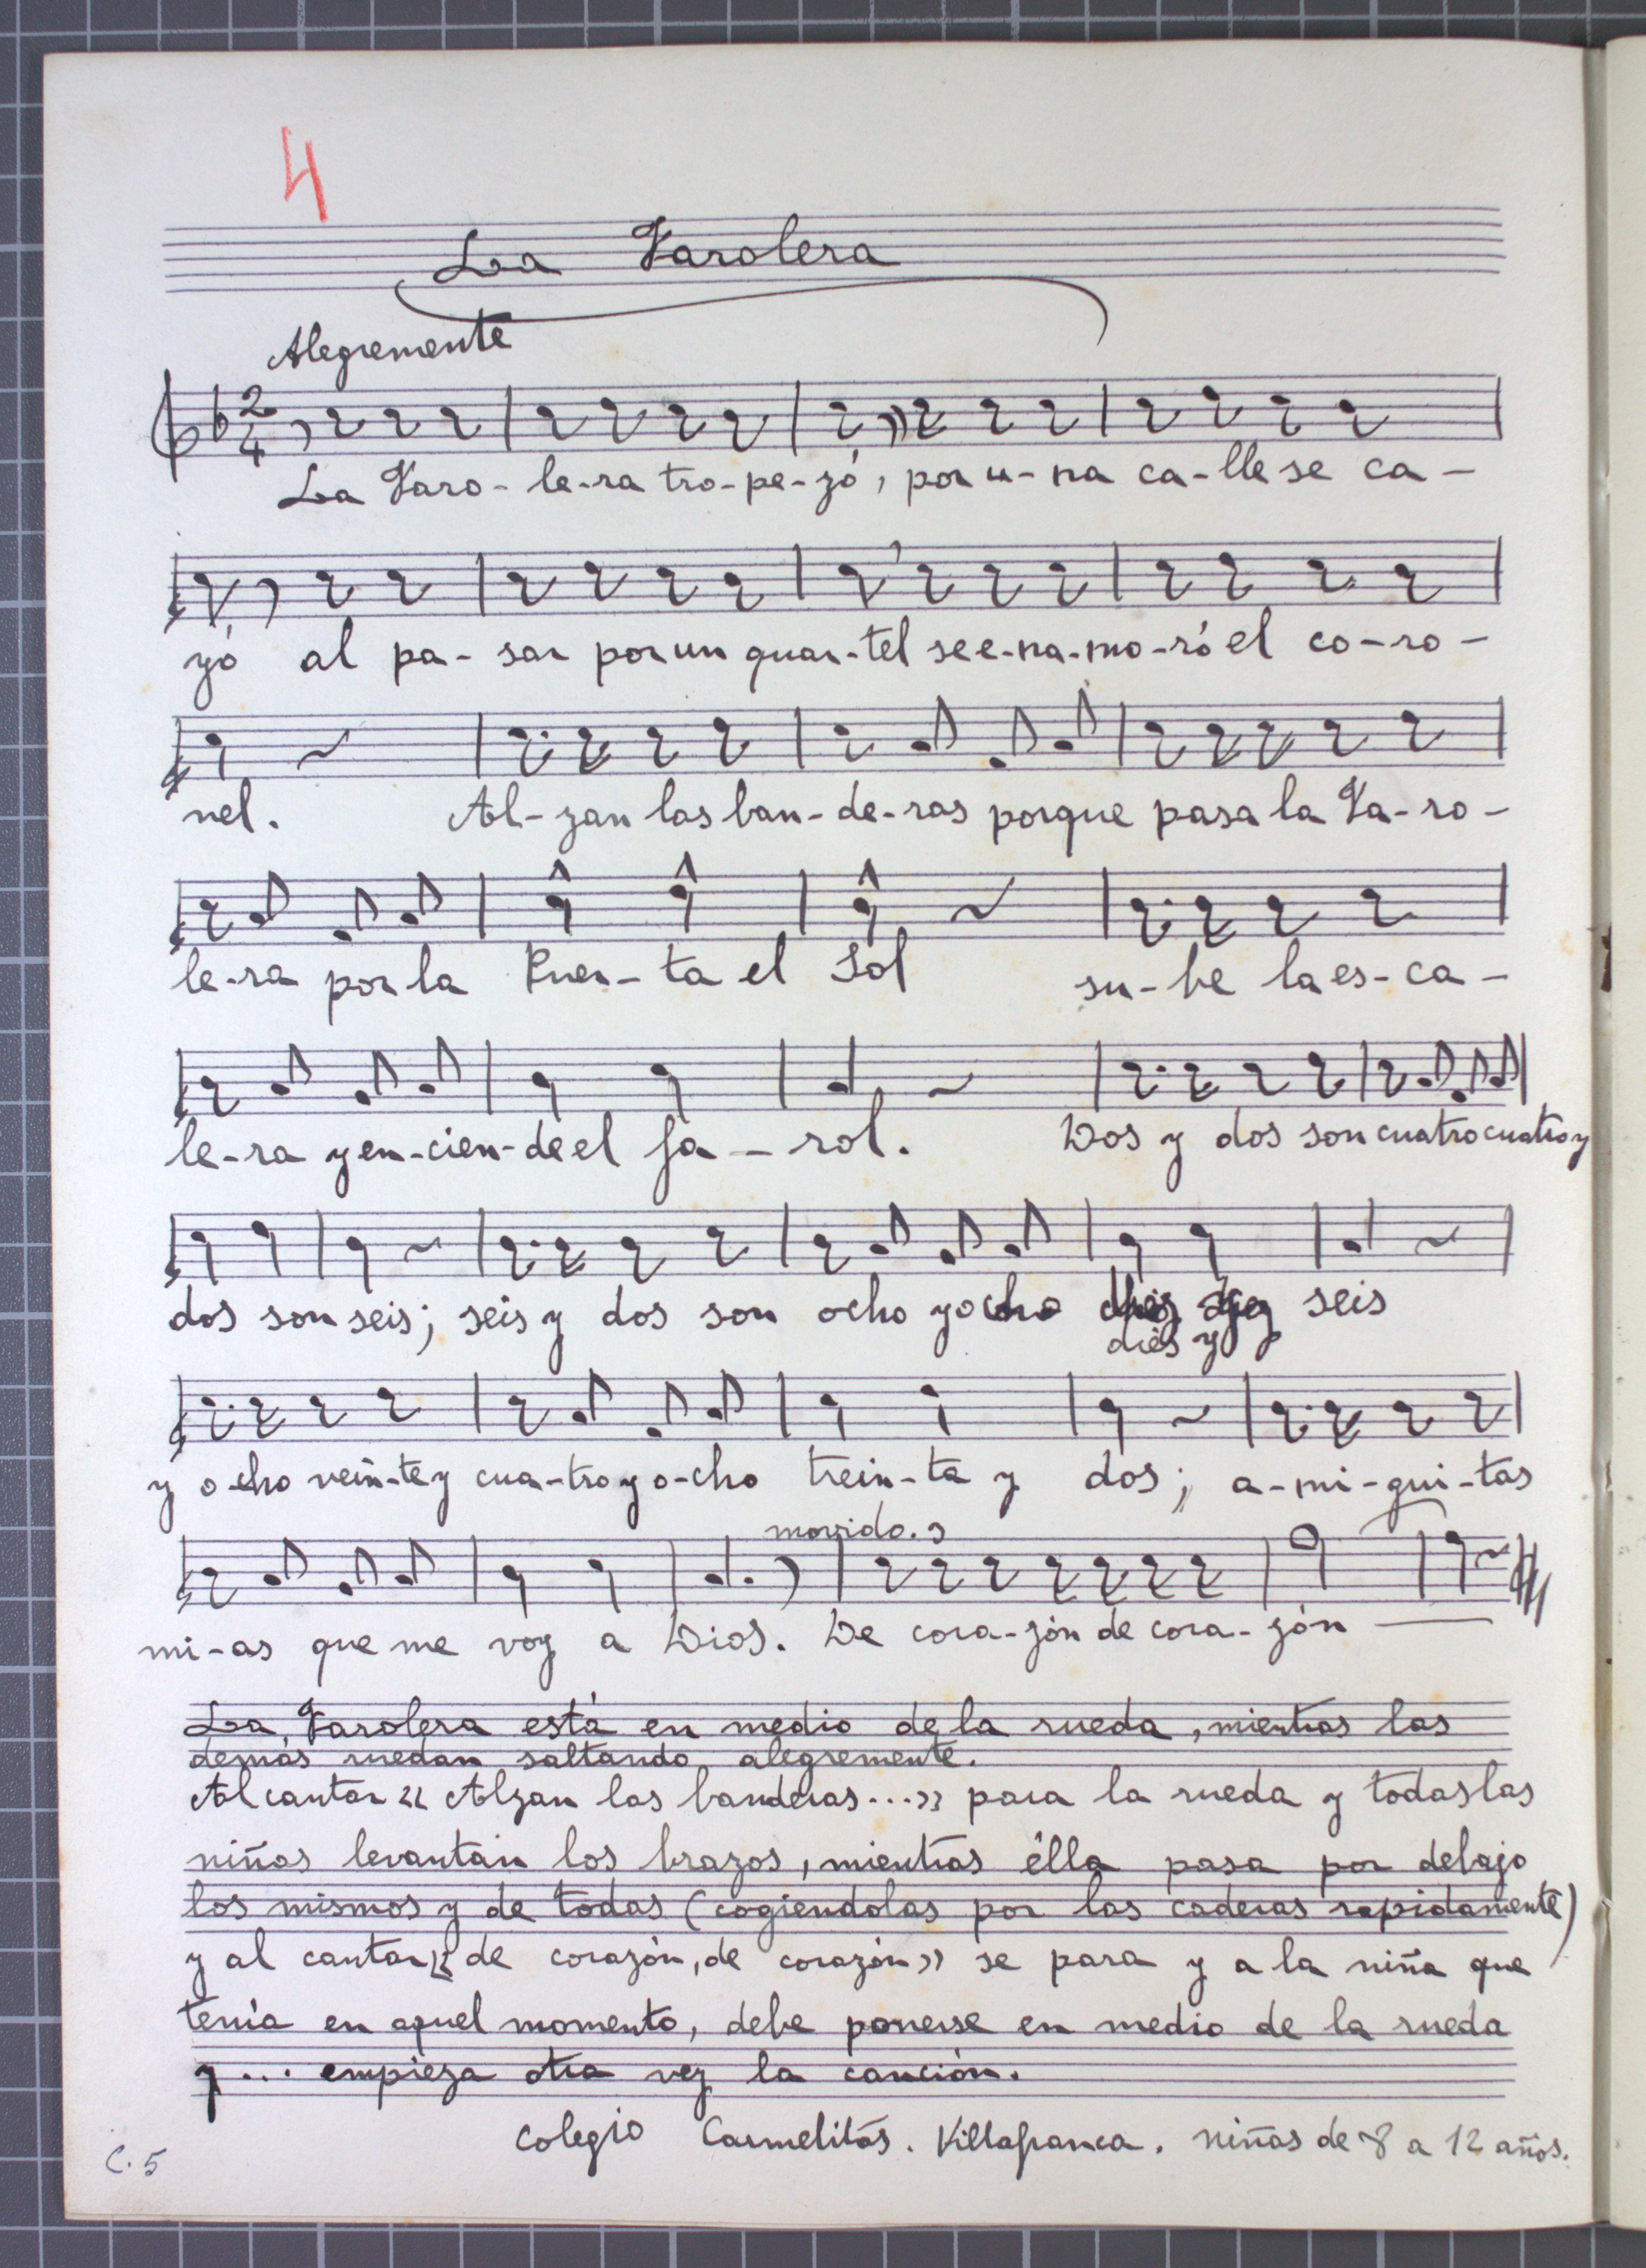 4
La Farolera
Alegremente
2
4
La Faro-le-ra tro-pe-zó, por u-na ca-lle se ca-
yó al pa-sar por un quar-tel se e-na-mo-ró el co-ro-
nel. Al-zan las ban-de-ras porque pasa la Fa-ro-
le-ra por la Puer-ta el Sol su-be la es-ca-
le-ra y en-cien-de el fa-rol. Dos y dos son cuatro cuatro y
dos son seis; seis y dos son ocho y ocho seis
diés y
y o-cho vein-te y cua-tro y o-cho trein-ta y dos; a-mi-gui-tas
movido.
mi-as que me voy a Dios. De cora-zón de cora-zón
La Farolera está en medio de la rueda, mientras las
demás ruedan saltando alegremente.
Al cantar «Alzan las banderas...» para la rueda y todas las
niñas levantan los brazos, mientras élla pasa por debajo
los mismos y de todas (cogiendolas por las caderas rapidamente)
y al cantar «de corazón, de corazón» se para y a la niña que
tenía en aquel momento, debe ponerse en medio de la rueda
y... empieza otra vez la canción.
Colegio Carmelitas. Villafranca. niñas de 8 a 12 años.
C. 5